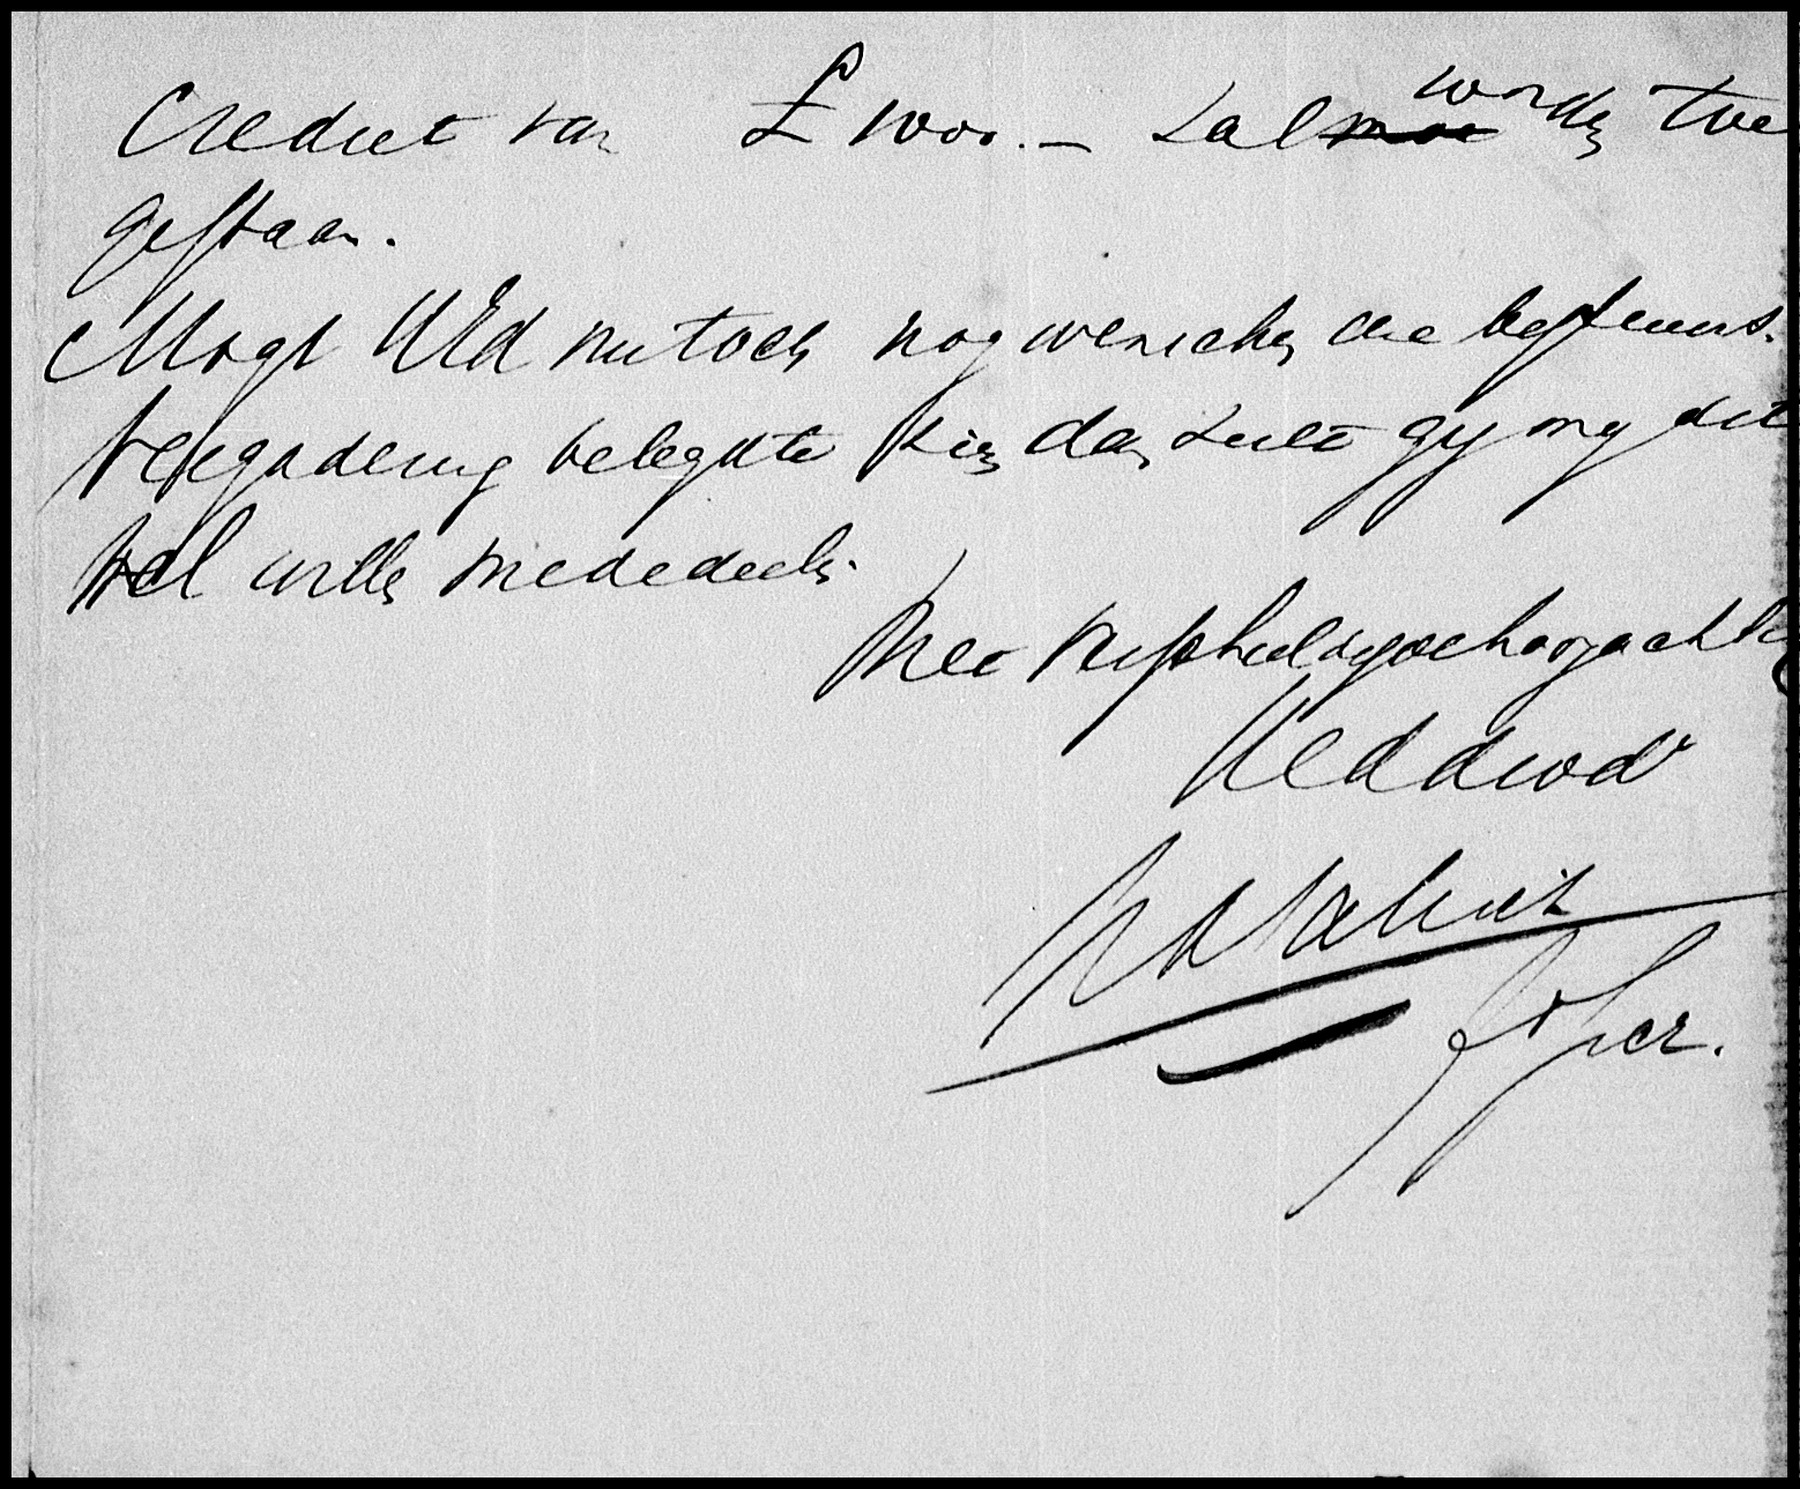 Crediet van £ 1000.– zal worden toe
gestaan.
Mogt UEd nu toch nog wenschen de bestuurs-
vergadering belegd te zien dan zult gy my dit
wel willen mededeelen.
Met verschuldigde hoogachting
UEd dwd